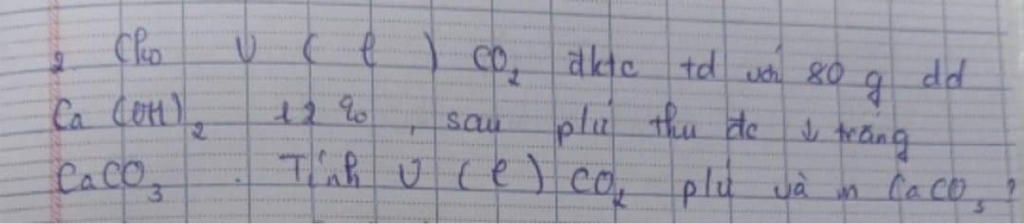 2 Cho V ( l ) CO2 đktc td với 80 g dd
Ca (OH)2 12 % , sau pứ thu đc ↓ trắng
CaCO3 . Tính V (l) CO2 pứ và m CaCO3 ?